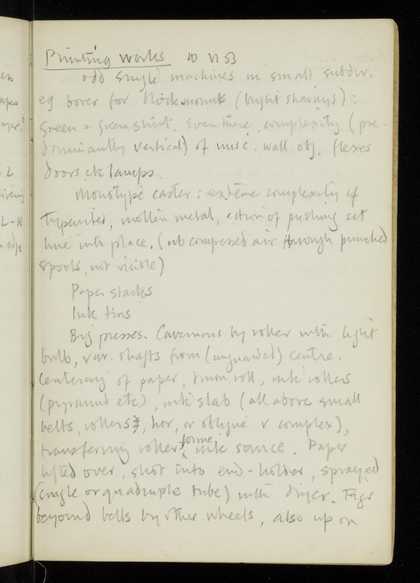 Printing Works 10 VI 53
odd single machines in small subdiv.
eg borer for blockmount (bright shavings):
green & green shirt. Even there, complexity (pre-
dominantly vertical) of misc. wall obj, flexes
doors etc lamps.
Monotype caster: extreme complexity of
typewriter, molten metal, action of pushing set
line into place. (not compressed air through punched
spools, not visible)
Paper stacks
Ink tins
Big presses. Cavernous by roller with light
bulb, var. shafts from (unguarded) centre.
Centering of paper, drum roll, ink rollers
(pyramid etc), ink slab (all above small
belts, rollers, hor, or oblique v complex),
transferring roller, forme, ink source. Paper
lifted over, shot into end-holder, sprayed
(single or quadruple tube) with dryer. Figs
beyond belts by other wheels, also up on